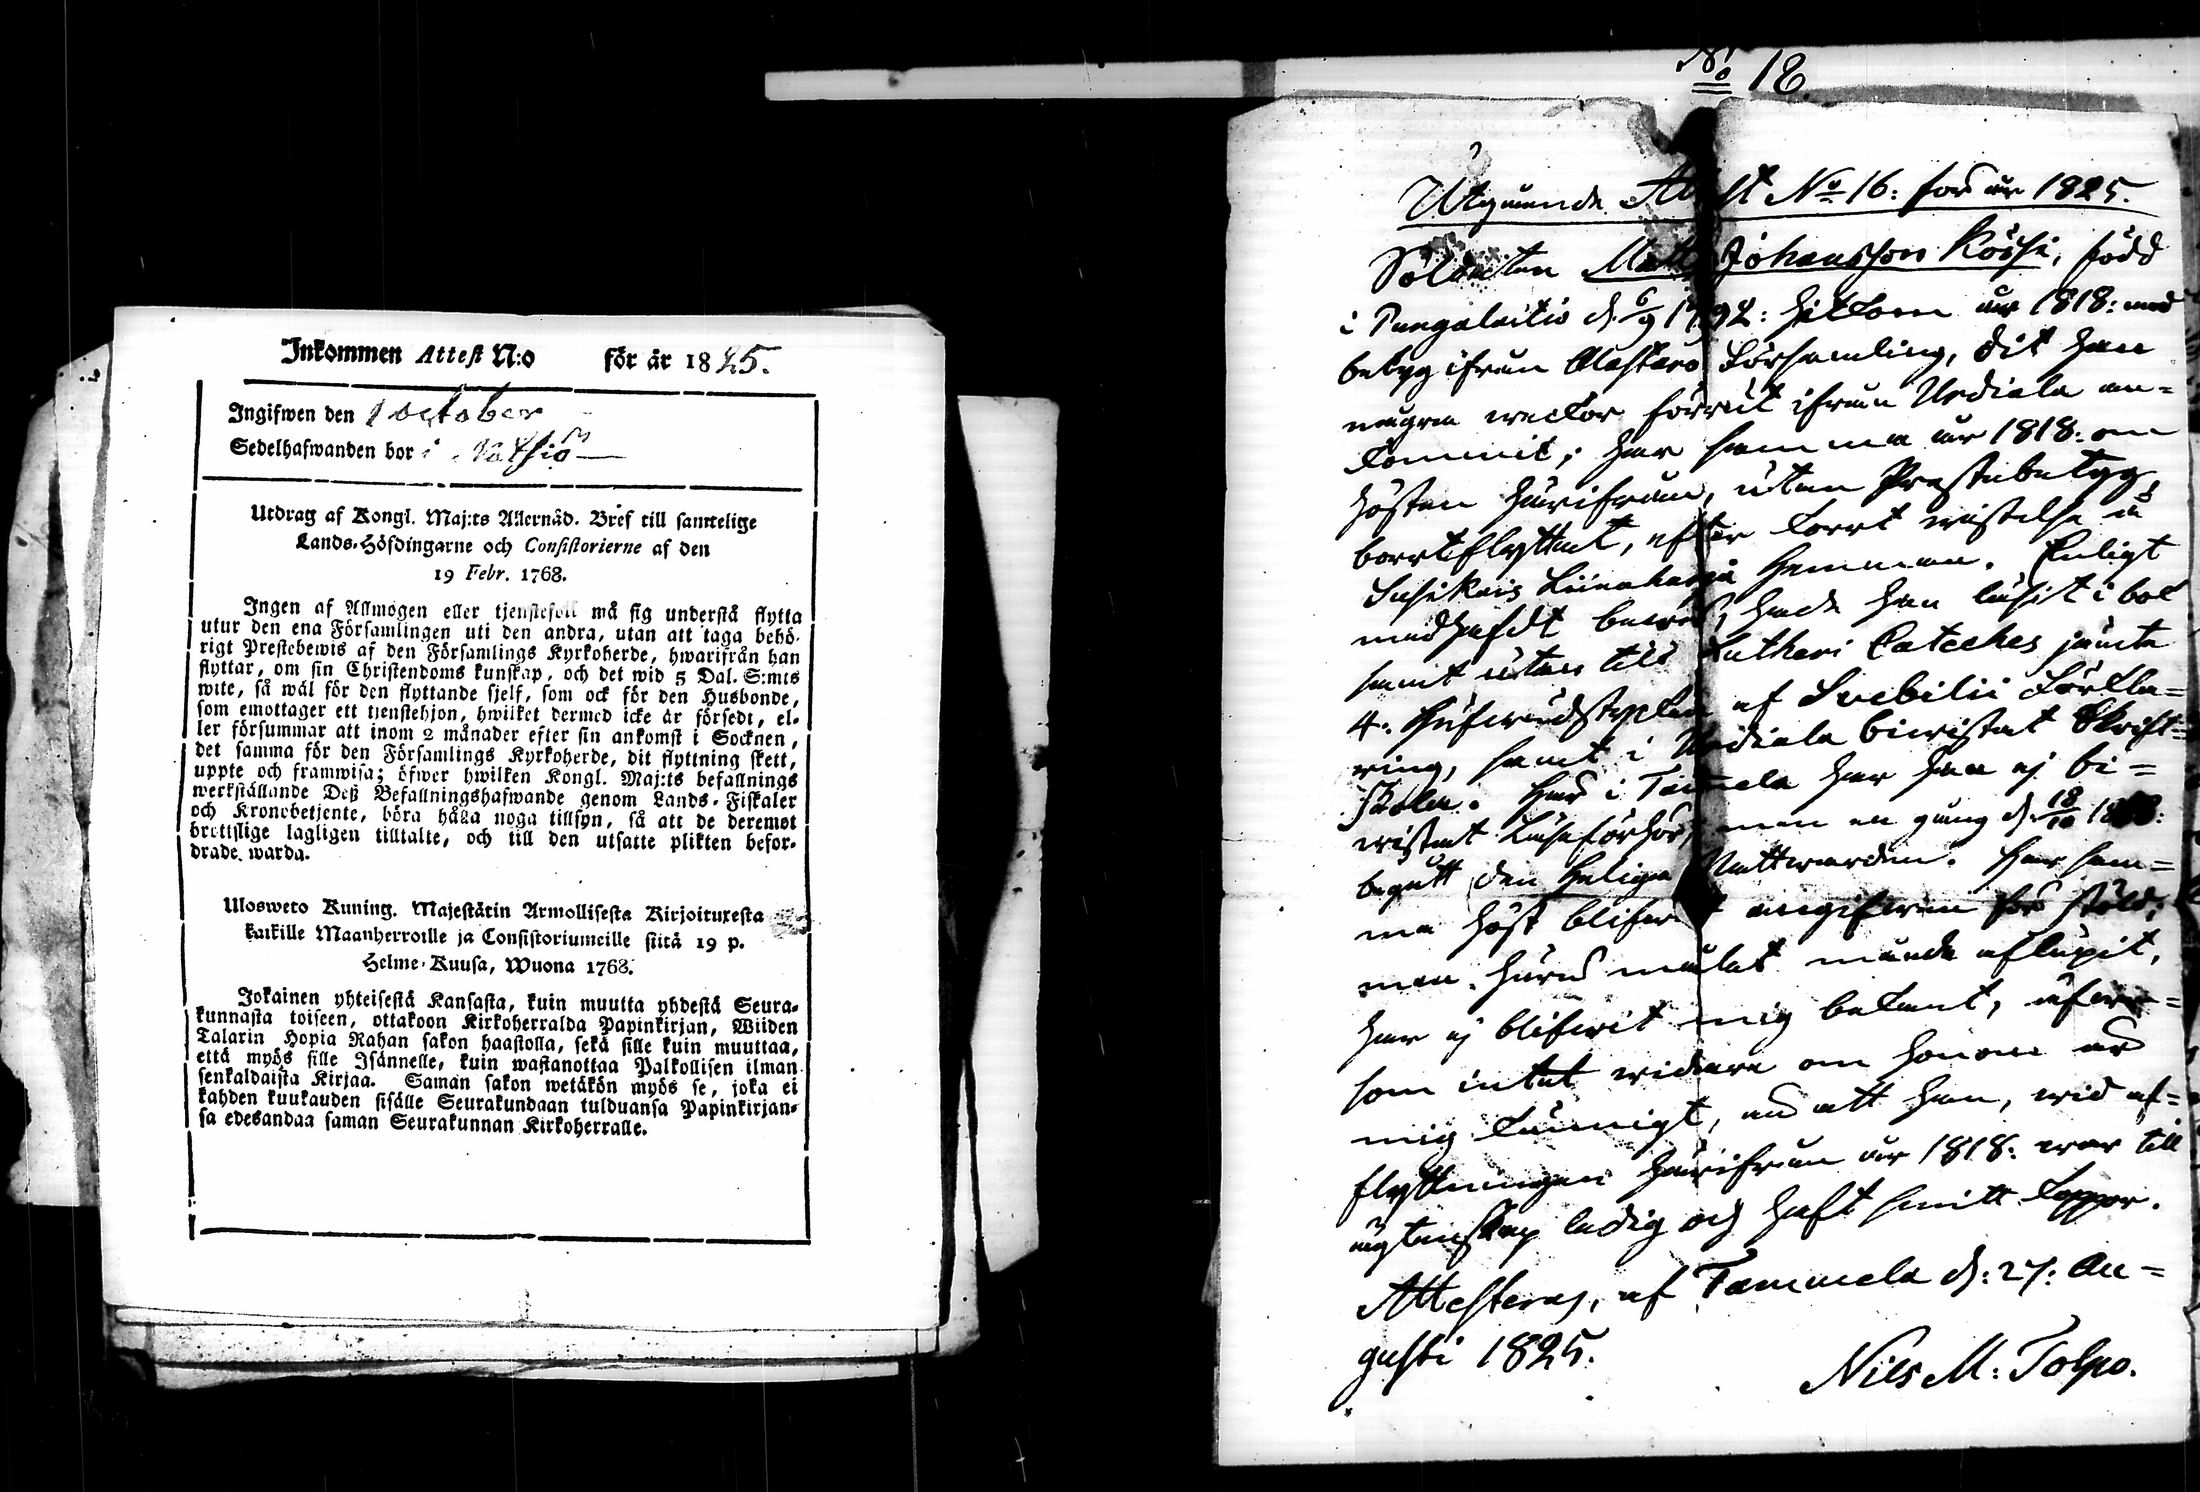 Inkommen Attest N:o för år 1825.
Ingifwen den 1 october
Sedelhafwanden bor i
Utdrag af Kongl. Maj:ts Allernåd. Bref till samtelige
Lands-Höfdingarne och Consistorierne af den
19 Febr. 1768.
Ingen af Allmogen eller tjenstefolk må sig understå flytta
utur den ena Församlingen uti den andra, utan att taga behö-
rigt Prestebewis af den Församlings Kyrkoherde, hwarifrån han
flyttar, om sin Christendoms kunskap, och det wid 5 Dal. S:mts
wite, så wäl för den flyttande sjelf, som ock för den Husbonde,
som emottager ett tjenstehjon, hwilket dermed icke är försedt, el-
ler försummar att inom 2 månader efter sin ankomst i Socknen,
det samma för den Församlings Kyrkoherde, dit flyttning skett,
uppte och framwisa; öfwer hwilken Kongl. Maj:ts befallnings
werkställande Deß Befallningshafwande genom Lands-Fiskaler
och Kronobetjente, böra hålla noga tillsyn, så att de deremot
brottslige lagligen tilltalte, och till den utsatte plikten befor-
drade warda.
Ulosweto Kuning. Majestätin Armollisesta Kirjoituxesta
kaikille Maanherroille ja Consistoriumeille siitä 19 p.
Helme-Kuusa, Wuona 1768.
Jokainen yhteisestä Kansasta, kuin muutta yhdestä Seura-
kunnasta toiseen, ottakoon Kirkoherralda Papinkirjan, Wiiden
Talarin Hopia Rahan sakon haastolla, sekä sille kuin muuttaa,
että myös sille Isännelle, kuin wastanottaa Palkollisen ilman
senkaldaista Kirjaa. Saman sakon wetäkön myös se, joka ei
kahden kuukauden sisälle Seurakundaan tulduansa Papinkirjan-
sa edesandaa saman Seurakunnan Kirkoherralle.
No 18.
Utgående Attest No 16: för år 1825.
Soldaten Matts Johansson Koski, född
i Pungalaitio d. 6/9 1792: hitkom år 1818: med
betyg ifrån Alastaro Församling, dit han
några weckor förrut ifrån Urdiala an=
kommit; har samma år 1818: om
hösten härifrån, utan Prestabetyg,
bortflyttat, efter kort wistelse å
Susikais hemman. Enligt
medhafdt bewis, hade han läsit i bok
samt utan till Lutheri Cateches jämte
4. Hufwudstycken af Svebilii Förkla=
ring, samt i Urdiala biwistat Skrift=
skola. Här i Tammela har han ej bi=
wistat Läseförhör, men en gång d. 18/10 1818:
begått den Heliga Nattwarden. Har sam=
ma höst blifwit angifwen för stöld;
men huru målet månde aflupit,
har ej blifwit mig bekant, äfwen=
som intet widare om honom är
mig kunnigt, än att han, wid af=
flyttningen härifrån år 1818: war till
ägtenskap ledig och haft smitt koppor.
Attesteras, af Tammela d: 27: Au=
gusti 1825.
Nils M: Tolpo.